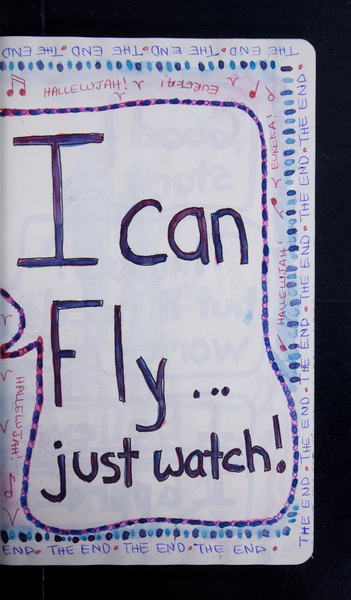 END • THE END • THE END • THE END
HALLELUJAH! EUREKA!
I can
Fly...
just watch!
EUREKA!
HALLELUJAH!
HALLELUJAH!
THE END • THE END • THE END • THE END • THE END • THE END
END • THE END • THE END • THE END •